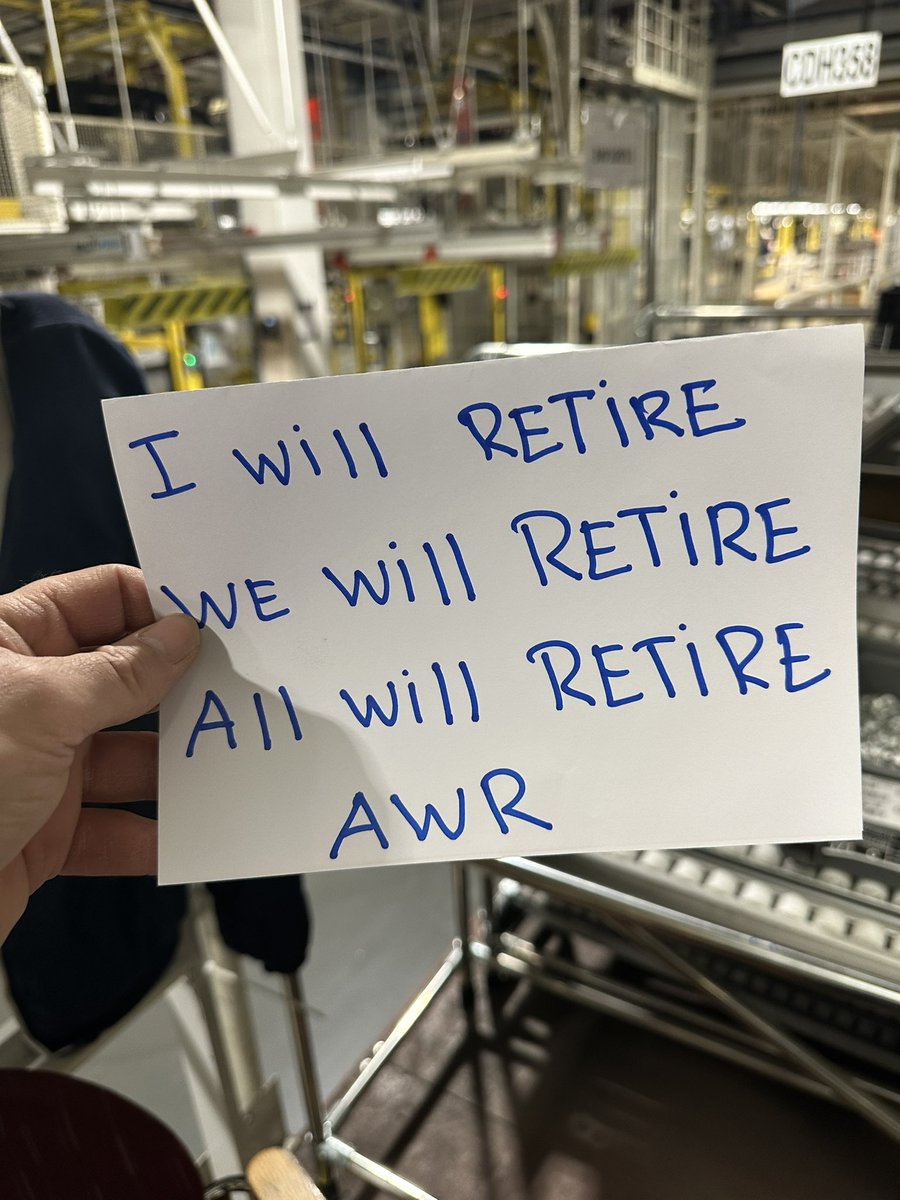 CDH358
I will RETiRE
WE will RETiRE
All will RETiRE
AWR